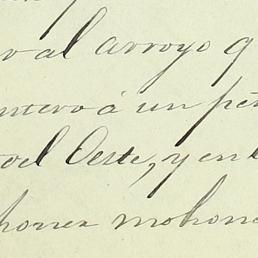 al arroyo q
ntero á un pe
del Oeste, y en l
poner mohone